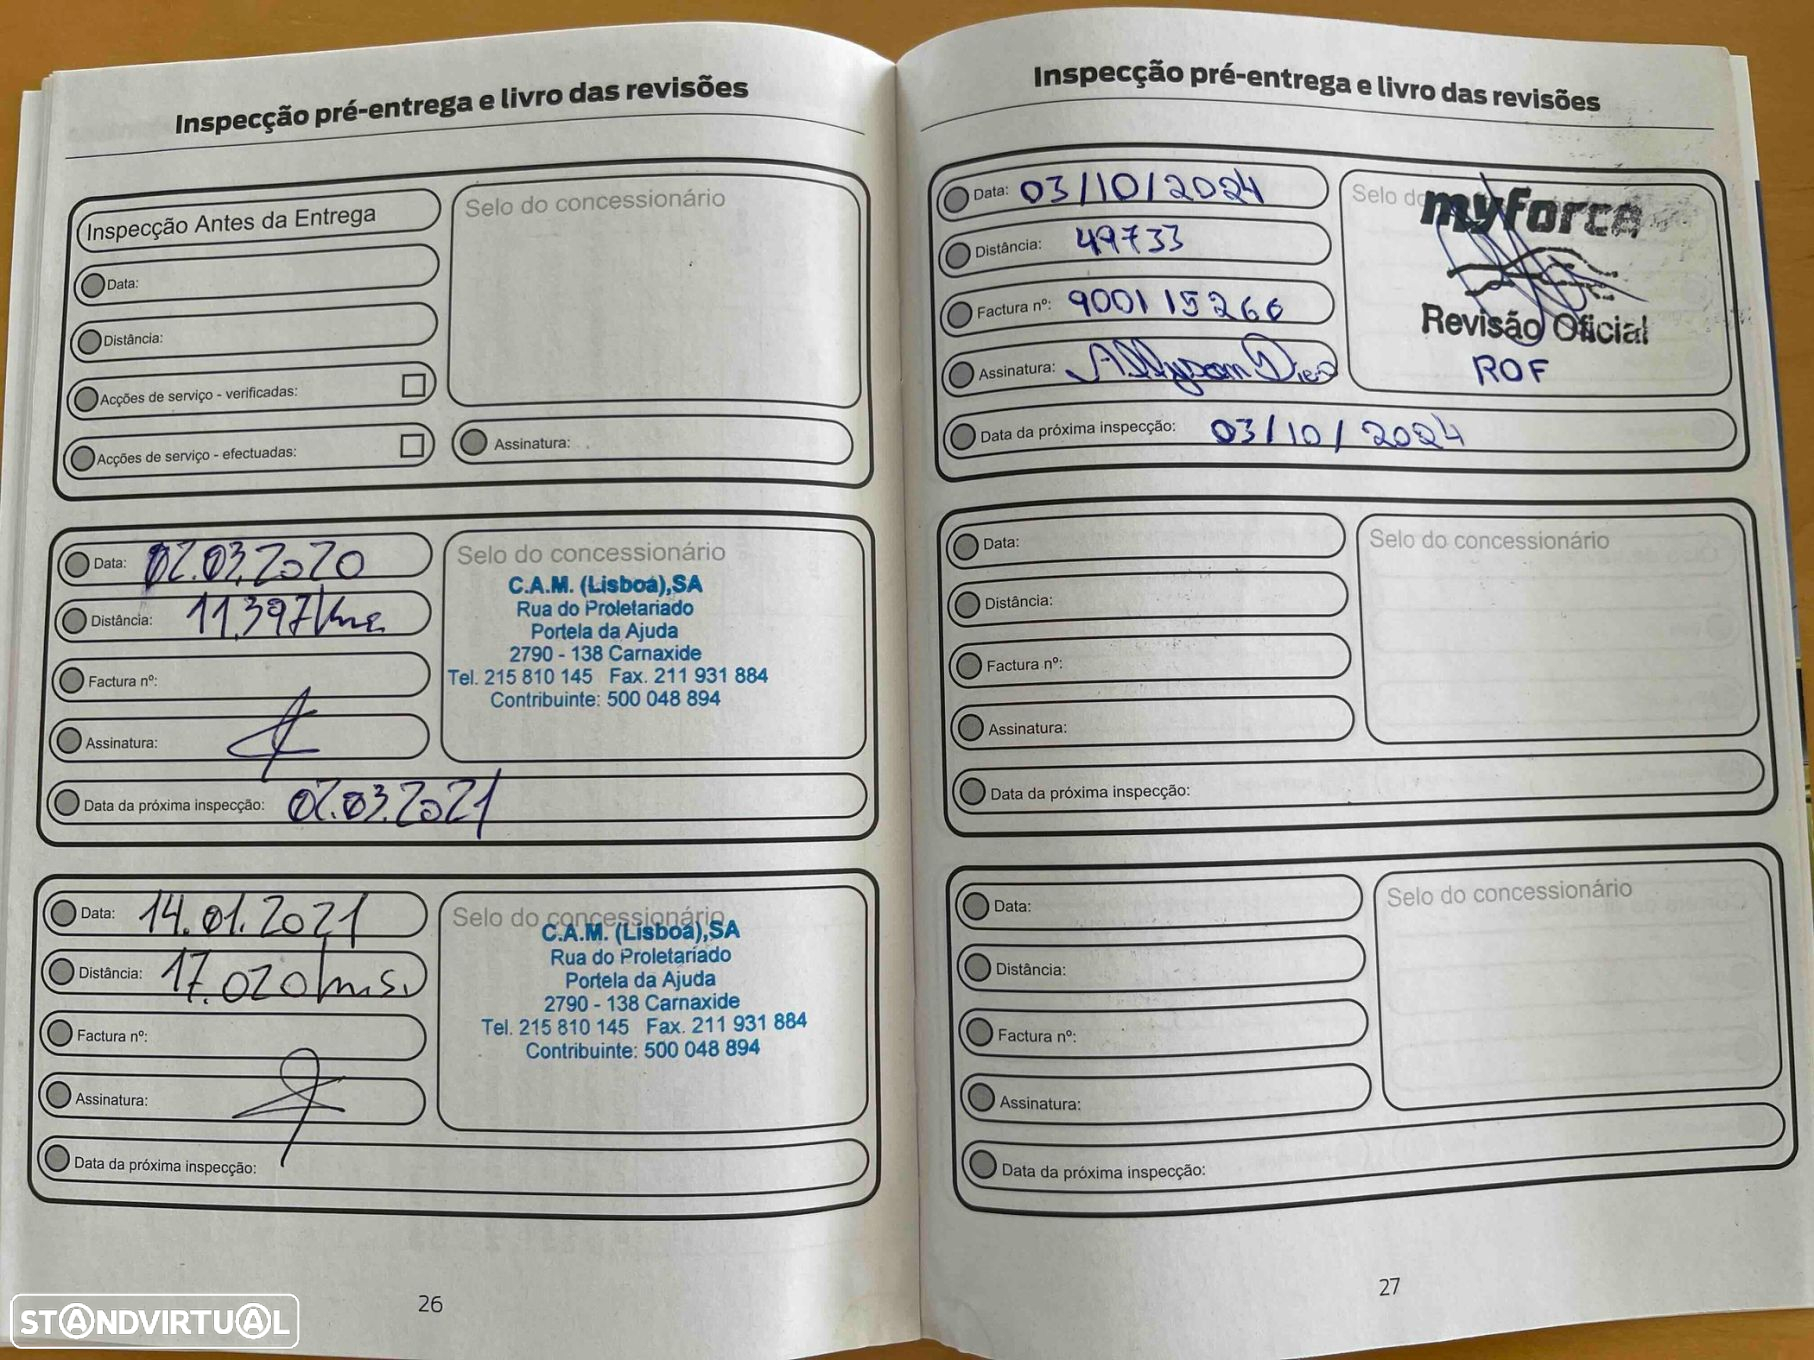 Inspecção pré-entrega e livro das revisões
Inspecção Antes da Entrega
Data:
Distância:
Acções de serviço - verificadas:
Acções de serviço - efectuadas:
Selo do concessionário
Assinatura:
Data: 02.03.2020
Distância: 11.397 kms
Factura nº:
Assinatura:
Selo do concessionário
C.A.M. (Lisboa),SA
Rua do Proletariado
Portela da Ajuda
2790 - 138 Carnaxide
Tel. 215 810 145 Fax. 211 931 884
Contribuinte: 500 048 894
Data da próxima inspecção: 02.03.2021
Data: 14.01.2021
Distância: 17.020 kms.
Factura nº:
Assinatura:
Selo do concessionário
C.A.M. (Lisboa),SA
Rua do Proletariado
Portela da Ajuda
2790 - 138 Carnaxide
Tel. 215 810 145 Fax. 211 931 884
Contribuinte: 500 048 894
Data da próxima inspecção:
26
Inspecção pré-entrega e livro das revisões
Data: 03/10/2024
Distância: 49733
Factura nº: 900115266
Assinatura:
Selo do
myforce
Revisão Oficial
ROF
Data da próxima inspecção: 03/10/2024
Data:
Distância:
Factura nº:
Assinatura:
Selo do concessionário
Data da próxima inspecção:
Data:
Distância:
Factura nº:
Assinatura:
Selo do concessionário
Data da próxima inspecção:
27
STANDVIRTUAL